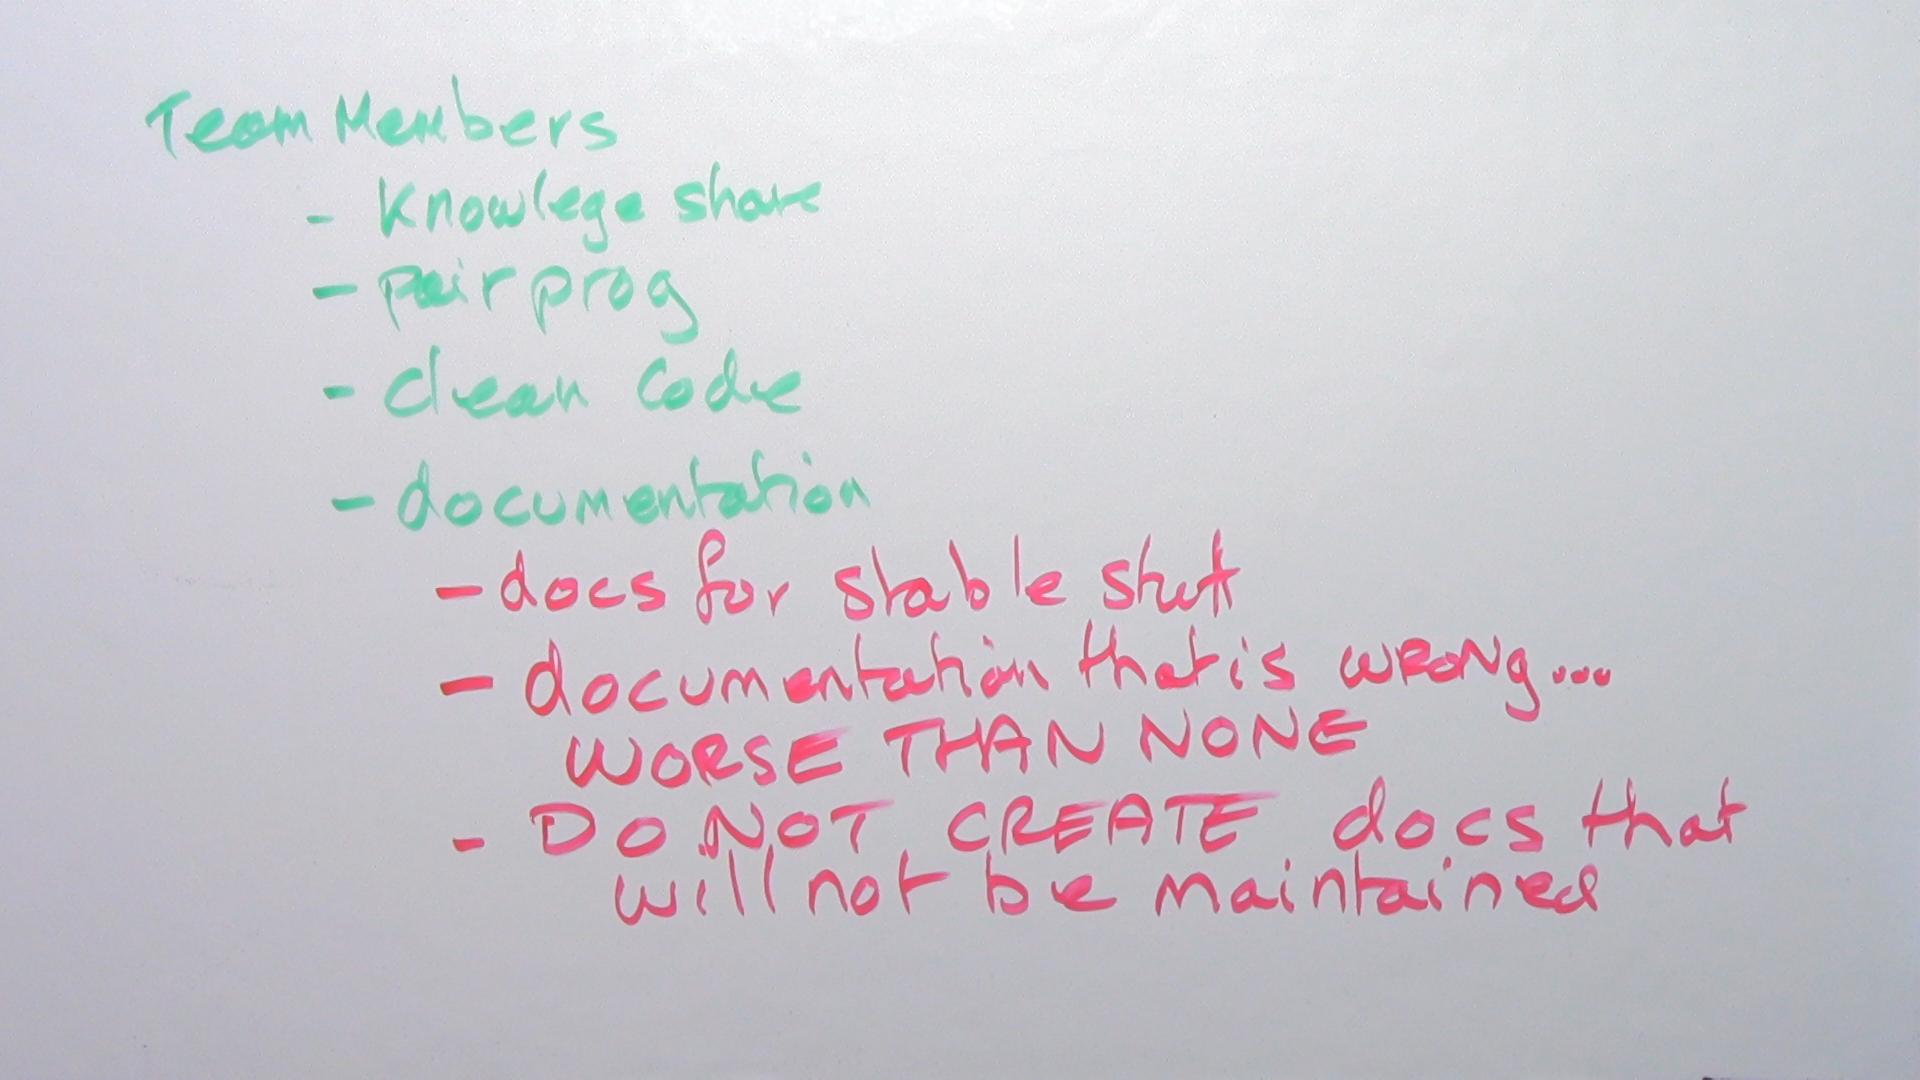 Team Members
- Knowlege share
- pair prog
- clean code
- documentation
- docs for stable stuff
- documentation that is WRONG...
WORSE THAN NONE
- DO NOT CREATE docs that
will not be maintained